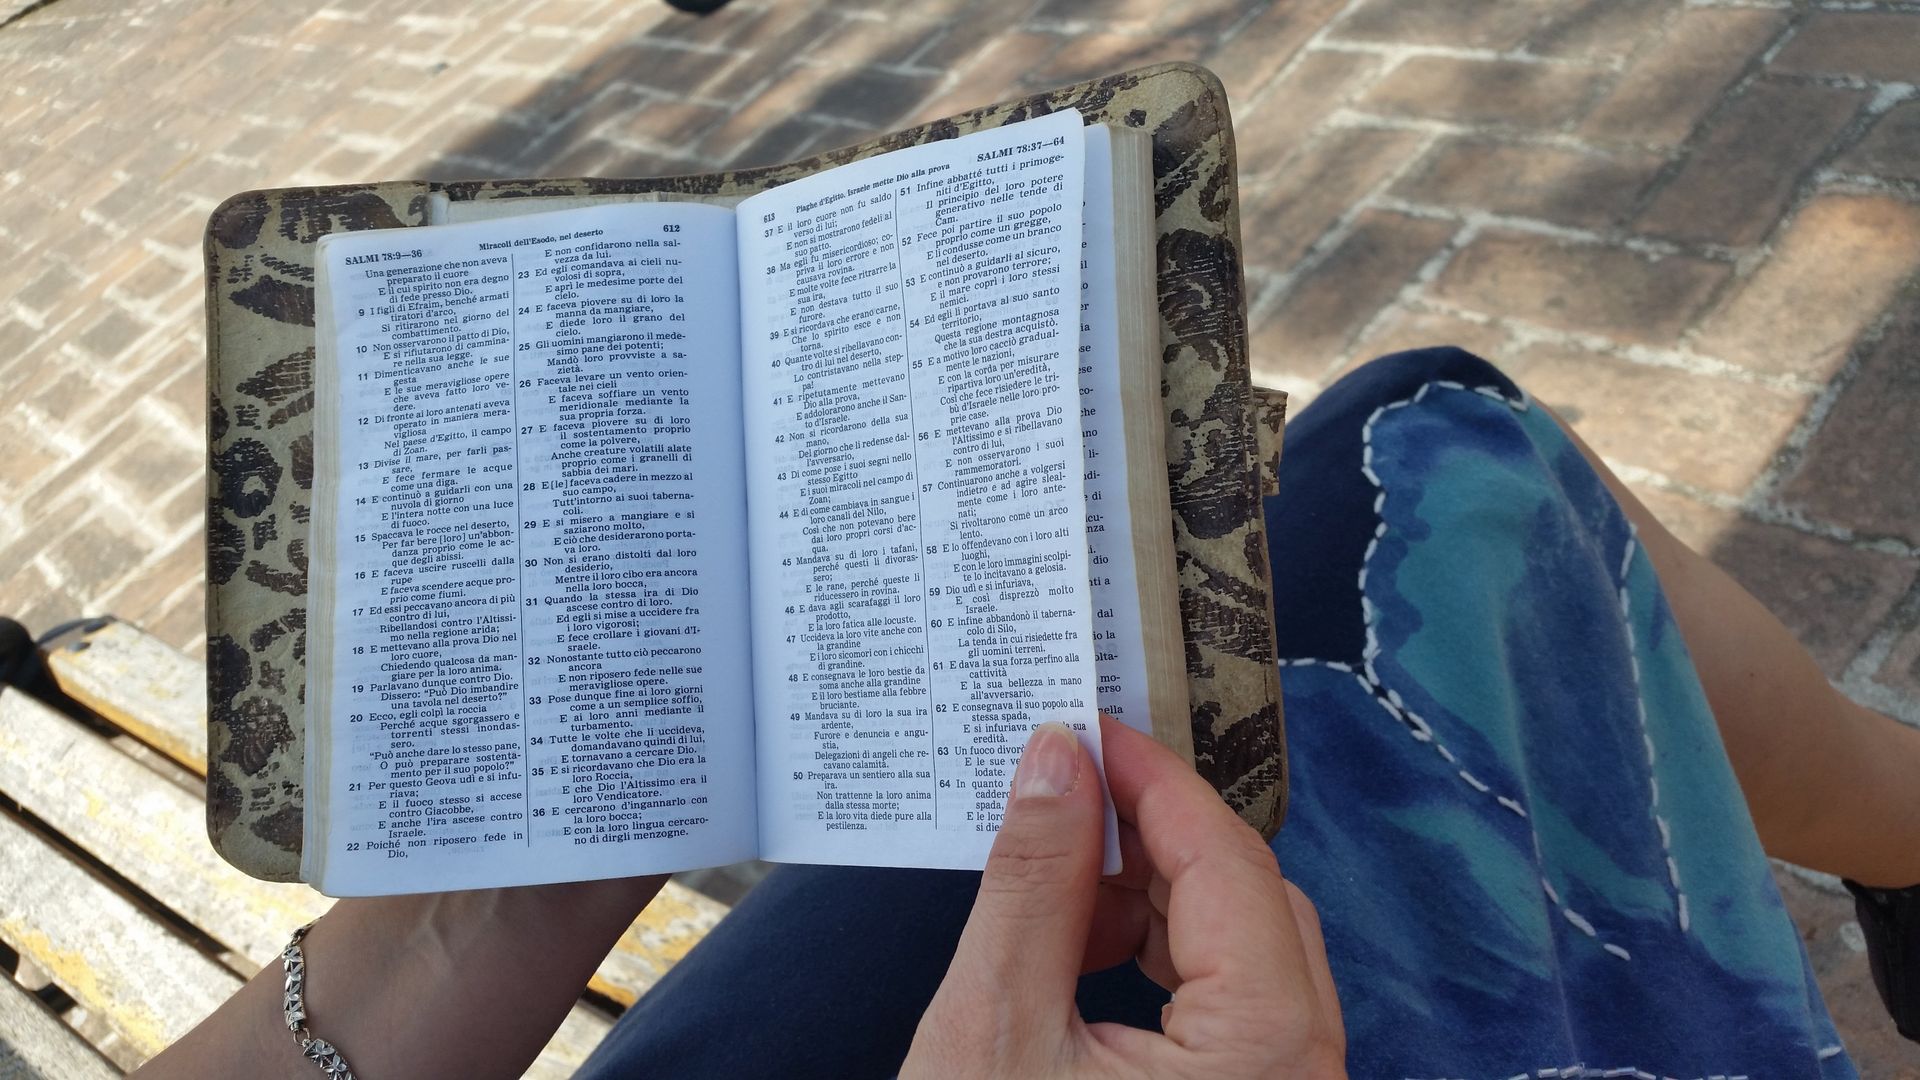 SALMI 78:9—36
Miracoli dell'Esodo, nel deserto
612
Una generazione che non aveva
preparato il cuore
E il cui spirito non era degno
di fede presso Dio.
9 I figli di Efraim, benché armati
tiratori d'arco,
Si ritirarono nel giorno del
combattimento.
10 Non osservarono il patto di Dio,
E si rifiutarono di cammina-
re nella sua legge.
11 Dimenticavano anche le sue
gesta
E le sue meravigliose opere
che aveva fatto loro ve-
dere.
12 Di fronte ai loro antenati aveva
operato in maniera mera-
vigliosa
Nel paese d'Egitto, il campo
di Zoan.
13 Divise il mare, per farli pas-
sare,
E fece fermare le acque
come una diga.
14 E continuò a guidarli con una
nuvola di giorno
E l'intera notte con una luce
di fuoco.
15 Spaccava le rocce nel deserto,
Per far bere [loro] un'abbon-
danza proprio come le ac-
que degli abissi.
16 E faceva uscire ruscelli dalla
rupe
E faceva scendere acque pro-
prio come fiumi.
17 Ed essi peccavano ancora di più
contro di lui,
Ribellandosi contro l'Altissi-
mo nella regione arida;
18 E mettevano alla prova Dio nel
loro cuore,
Chiedendo qualcosa da man-
giare per la loro anima.
19 Parlavano dunque contro Dio.
Dissero: "Può Dio imbandire
una tavola nel deserto?"
20 Ecco, egli colpì la roccia
Perché acque sgorgassero e
torrenti stessi inondas-
sero.
"Può anche dare lo stesso pane,
O può preparare sostenta-
mento per il suo popolo?"
21 Per questo Geova udì e si infu-
riava;
E il fuoco stesso si accese
contro Giacobbe,
E anche l'ira ascese contro
Israele.
22 Poiché non riposero fede in
Dio,
E non confidarono nella sal-
vezza da lui.
23 Ed egli comandava ai cieli nu-
volosi di sopra,
E aprì le medesime porte del
cielo.
24 E faceva piovere su di loro la
manna da mangiare,
E diede loro il grano del
cielo.
25 Gli uomini mangiarono il mede-
simo pane dei potenti;
Mandò loro provviste a sa-
zietà.
26 Faceva levare un vento orien-
tale nei cieli
E faceva soffiare un vento
meridionale mediante la
sua propria forza.
27 E faceva piovere su di loro
il sostentamento proprio
come la polvere,
Anche creature volatili alate
proprio come i granelli di
sabbia dei mari.
28 E [le] faceva cadere in mezzo al
suo campo,
Tutt'intorno ai suoi taberna-
coli.
29 E si misero a mangiare e si
saziarono molto,
E ciò che desiderarono porta-
va loro.
30 Non si erano distolti dal loro
desiderio,
Mentre il loro cibo era ancora
nella loro bocca,
31 Quando la stessa ira di Dio
ascese contro di loro.
Ed egli si mise a uccidere fra
i loro vigorosi;
E fece crollare i giovani d'I-
sraele.
32 Nonostante tutto ciò peccarono
ancora
E non riposero fede nelle sue
meravigliose opere.
33 Pose dunque fine ai loro giorni
come a un semplice soffio,
E ai loro anni mediante il
turbamento.
34 Tutte le volte che li uccideva,
domandavano quindi di lui,
E tornavano a cercare Dio.
35 E si ricordavano che Dio era la
loro Roccia,
E che Dio l'Altissimo era il
loro Vendicatore.
36 E cercarono d'ingannarlo con
la loro bocca;
E con la loro lingua cercaro-
no di dirgli menzogne.
613
Piaghe d'Egitto. Israele mette Dio alla prova
SALMI 78:37—64
37 E il loro cuore non fu saldo
verso di lui;
E non si mostrarono fedeli al
suo patto.
38 Ma egli fu misericordioso; co-
priva il loro errore e non
causava rovina.
E molte volte fece ritrarre la
sua ira,
E non destava tutto il suo
furore.
39 E si ricordava che erano carne,
Che lo spirito esce e non
torna.
40 Quante volte si ribellavano con-
tro di lui nel deserto,
Lo contristavano nella step-
pa!
41 E ripetutamente mettevano
Dio alla prova,
E addolorarono anche il San-
to d'Israele.
42 Non si ricordarono della sua
mano,
Del giorno che li redense dal-
l'avversario,
43 Di come pose i suoi segni nello
stesso Egitto
E i suoi miracoli nel campo di
Zoan;
44 E di come cambiava in sangue i
loro canali del Nilo,
Così che non potevano bere
dai loro propri corsi d'ac-
qua.
45 Mandava su di loro i tafani,
perché questi li divoras-
sero;
E le rane, perché queste li
riducessero in rovina.
46 E dava agli scarafaggi il loro
prodotto,
E la loro fatica alle locuste.
47 Uccideva la loro vite anche con
la grandine
E i loro sicomori con i chicchi
di grandine.
48 E consegnava le loro bestie da
soma anche alla grandine
E il loro bestiame alla febbre
bruciante.
49 Mandava su di loro la sua ira
ardente,
Furore e denuncia e angu-
stia,
Delegazioni di angeli che re-
cavano calamità.
50 Preparava un sentiero alla sua
ira.
Non trattenne la loro anima
dalla stessa morte;
E la loro vita diede pure alla
pestilenza.
51 Infine abbatté tutti i primoge-
niti d'Egitto,
Il principio del loro potere
generativo nelle tende di
Cam.
52 Fece poi partire il suo popolo
proprio come un gregge,
E li condusse come un branco
nel deserto.
53 E continuò a guidarli al sicuro,
e non provarono terrore;
E il mare coprì i loro stessi
nemici.
54 Ed egli li portava al suo santo
territorio,
Questa regione montagnosa
che la sua destra acquistò.
55 E a motivo loro cacciò gradual-
mente le nazioni,
E con la corda per misurare
ripartiva loro un'eredità,
Così che fece risiedere le tri-
bù d'Israele nelle loro pro-
prie case.
56 E mettevano alla prova Dio
l'Altissimo e si ribellavano
contro di lui,
E non osservarono i suoi
rammemoratori.
57 Continuarono anche a volgersi
indietro e ad agire sleal-
mente come i loro ante-
nati;
Si rivoltarono come un arco
lento.
58 E lo offendevano con i loro alti
luoghi,
E con le loro immagini scolpi-
te lo incitavano a gelosia.
59 Dio udì e si infuriava,
E così disprezzò molto
Israele.
60 E infine abbandonò il taberna-
colo di Silo,
La tenda in cui risiedette fra
gli uomini terreni.
61 E dava la sua forza perfino alla
cattività
E la sua bellezza in mano
all'avversario.
62 E consegnava il suo popolo alla
stessa spada,
E si infuriava la sua
eredità.
63 Un fuoco divorò
E le sue
lodate.
64 In quanto
spada,
E le